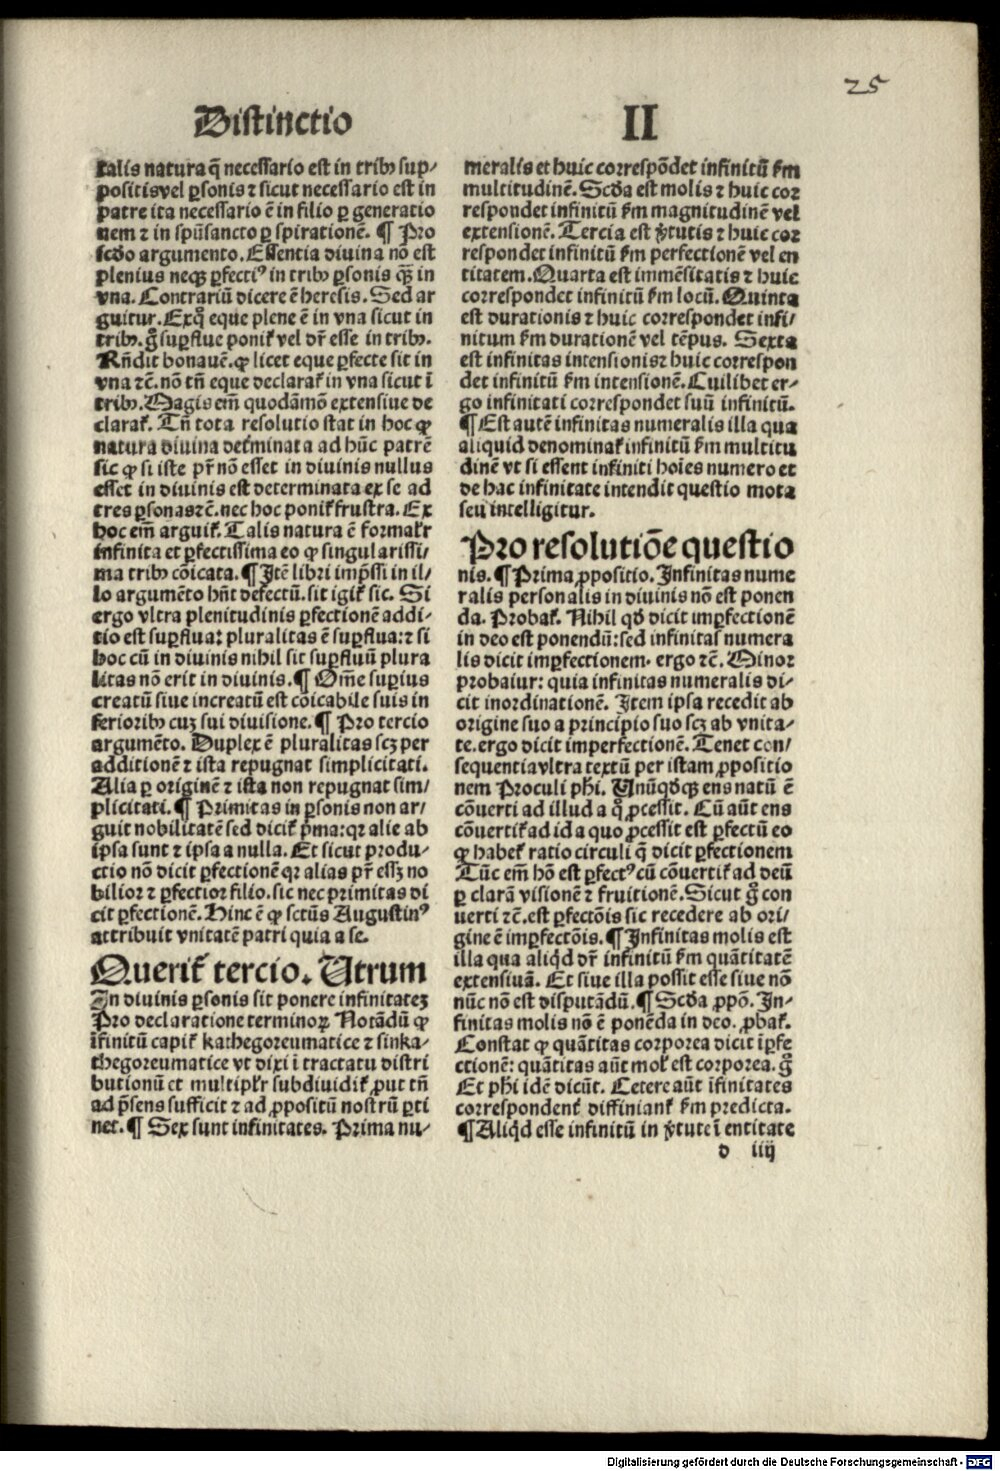 25
Distinctio II
talis natura q̃ necessario est in tribꝰ sup⸗
positis vel ꝑsonis ⁊ sicut necessario est in
patre ita necessario ē in filio ꝑ generatio
nem ⁊ in spũsancto ꝑ spirationē. ¶ Pro
scďo argumento. Essentia divina nō est
plenius neqꝫ ꝑfectiꝰ in tribꝰ ꝑsonis q̃ꝫ in
vna. Contrariũ dicere ē heresis. Sed ar
guitur. Exq̊ eque plene ē in vna sicut in
tribꝰ. g̊ suꝑflue ponit̃ vel dr̃ esse in tribꝰ.
Rñdit bonauē. ꝙ licet eque ꝑfecte sit in
vna ⁊c̄. nō tñ eque declarat̃ in vna sicut ī
tribꝰ. Magis em̃ quodāmō extensiue de
clarat̃. Tñ tota resolutio stat in hoc ꝙ
natura diuina det̃minata ad hũc patrē
sic ꝙ si iste pr̃ nō esset in diuinis nullus
esset in diuinis est determinata ex se ad
tres ꝑsonas ⁊c̄. nec hoc ponit̃ frustra. Ex
hoc em̃ arguit̃. Talis natura ē formalr̃
infinita et ꝑfectissima eo ꝙ singularissi⸗
ma tribꝰ cōicata. ¶ Itē libri imp̃ssi in il⸗
lo argumēto hñt defectũ. sit igit̃ sic. Si
ergo vltra plenitudinis ꝑfectionē addi⸗
tio est suꝑflua: pluralitas ē suꝑflua: ⁊ si
hoc cũ in diuinis nihil sit suꝑfluũ plura
litas nō erit in diuinis. ¶ Om̃e suꝑius
creatũ siue increatũ est cōicabile suis in
ferioribꝰ cuꝫ sui diuisione. ¶ Pro tercio
argumēto. Duplex ē pluralitas scꝫ per
additionē ⁊ ista repugnat simplicitati.
Alia ꝑ originē ⁊ ista non repugnat sim⸗
plicitati. ¶ Primitas in ꝑsonis non ar⸗
guit nobilitatē sed dicit̃ p̃ma: qꝛ alie ab
ipsa sunt ⁊ ipsa a nulla. Et sicut produ⸗
ctio nō dicit ꝑfectionē qꝛ alias pr̃ essꝫ no
bilior ⁊ ꝑfectior filio. sic nec primitas di
cit ꝑfectionē. Hinc ē ꝙ sctũs Augustinꝰ
attribuit vnitatē patri quia a se.
Querit̃ tercio. Utrum
In diuinis ꝑsonis sit ponere infinitateꝫ
Pro declaratione terminoꝝ Notādũ ꝙ
īfinitũ capit̃ kathegoreumatice ⁊ sinka⸗
thegoreumatice vt dixi ī tractatu distri
butionũ et multiplr̃ subdiuidit̃ ꝓut tñ
ad p̃sens sufficit ⁊ ad ꝓpositũ nostrũ ꝑti
net. ¶ Sex sunt infinitates. Prima nu⸗
meralis et huic correspōdet infinitũ ẜm
multitudinē. Scďa est molis ⁊ huic cor
respondet infinitũ ẜm magnitudinē vel
extensionē. Tercia est v̓tutis ⁊ huic cor
respondet infinitũ ẜm perfectionē vel en
titatem. Quarta est immēsitatis ⁊ huic
correspondet infinitũ ẜm locũ. Quinta
est durationis ⁊ huic correspondet infi⸗
nitum ẜm durationē vel tēpus. Sexta
est infinitas intensionis ⁊ huic correspon
det infinitũ ẜm intensionē. Cuilibet er⸗
go infinitati correspondet suũ infinitũ.
¶ Est autē infinitas numeralis illa qua
aliquid denominat̃ infinitũ ẜm multitu
dinē vt si essent infiniti hoĩes numero et
de hac infinitate intendit questio mota
seu intelligitur.
Pro resolutiōe questio
nis. ¶ Prima ꝓpositio. Infinitas nume
ralis personalis in diuinis nō est ponen
da. Probat̃. Nihil qď dicit imꝑfectionē
in deo est ponendũ: sed infinitas numera
lis dicit imꝑfectionem. ergo ⁊c̄. Minor
probatur: quia infinitas numeralis di⸗
cit inordinationē. Item ipsa recedit ab
origine suo a principio suo scꝫ ab vnita⸗
te. ergo dicit imperfectionē. Tenet con⸗
sequentia vltra textũ per istam ꝓpositio
nem Proculi phi. Unũqďqꝫ ens natũ ē
cōuerti ad illud a q̊ ꝓcessit. Cũ aũt ens
cōuertit̃ ad id a quo ꝓcessit est ꝑfectũ eo
ꝙ habet̃ ratio circuli q̃ dicit ꝑfectionem
Tũc em̃ hō est ꝑfectꝰ cũ cōuertit̃ ad deũ
ꝑ clarā visionē ⁊ fruitionē. Sicut g̊ con
uerti ⁊c̄. est ꝑfectōis sic recedere ab ori⸗
gine ē imꝑfectōis. ¶ Infinitas molis est
illa qua aliq̇d dr̃ infinitũ ẜm quātitatē
extensiuā. Et siue illa possit esse siue nō
nũc nō est disputādũ. ¶ Scďa ꝓpō. In⸗
finitas molis nō ē ponēda in deo. ꝓbat̃.
Constat ꝙ quātitas corporea dicit īꝑfe
ctionē: quātitas aũt mol̃ est corporea. g̊
Et phi idē dicũt. Cetere aũt īfinitates
correspondent̃ diffiniant̃ ẜm predicta.
¶ Aliq̇d esse infinitũ in v̓tute ī entitate
d iiij
Digitalisierung gefördert durch die Deutsche Forschungsgemeinschaft - DFG